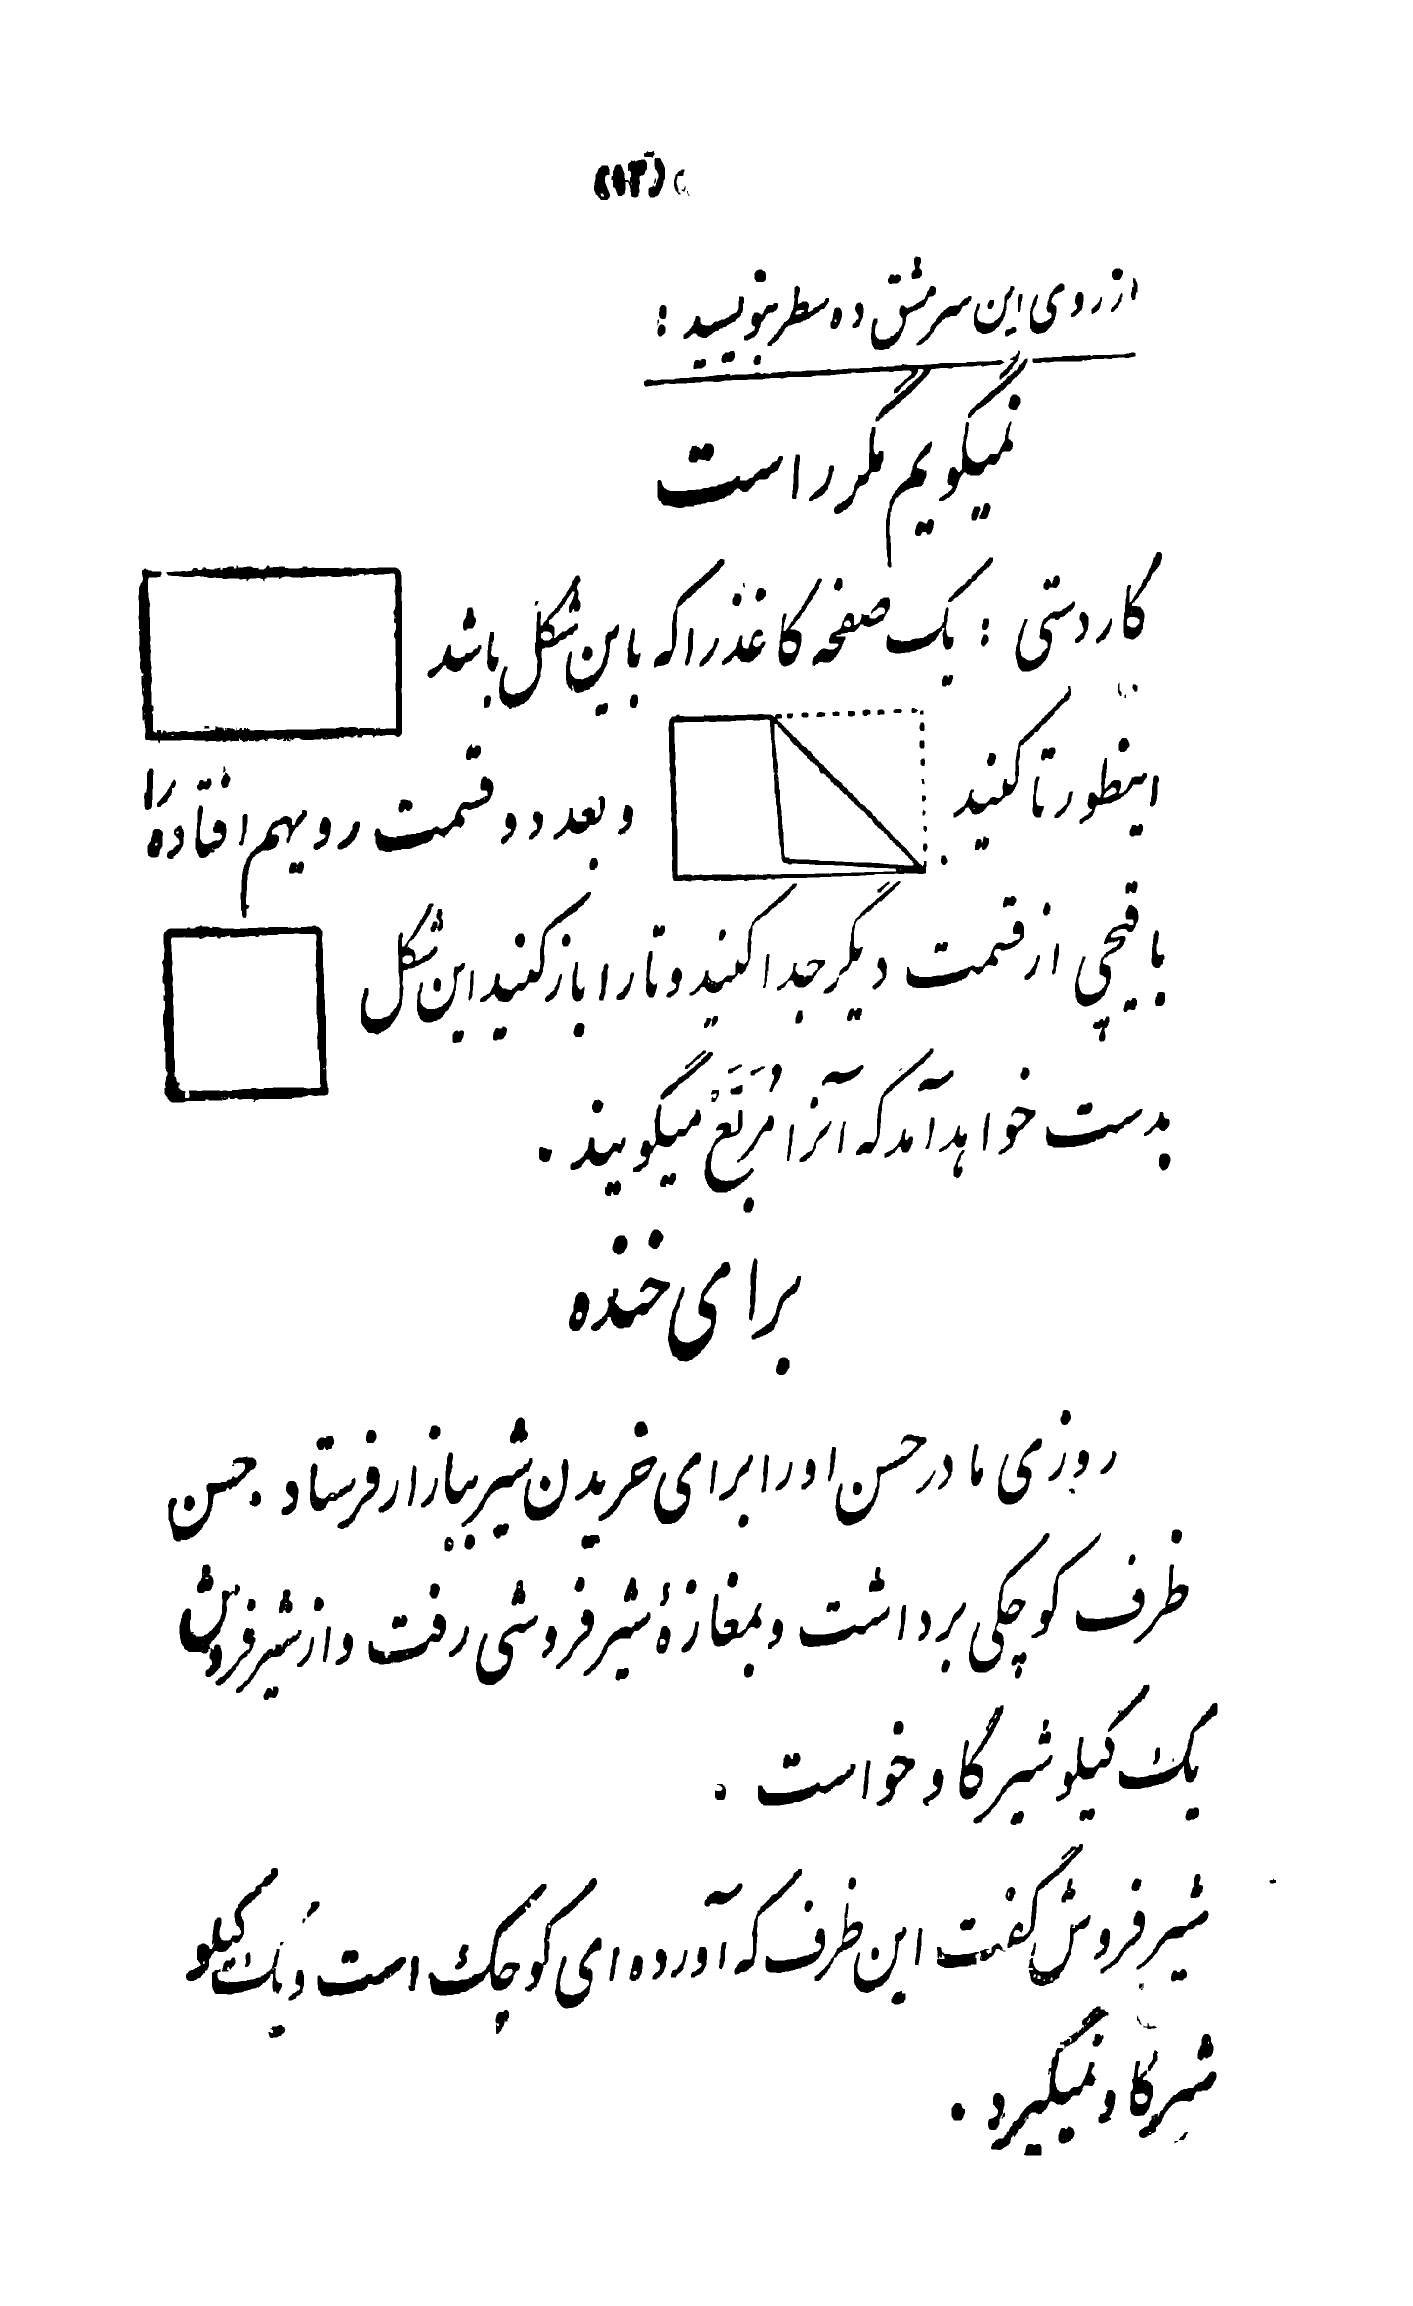 (۱۳)
از روی این سرمشق ده سطر بنویسید :
نمیگویم مگر راست
کاردستی : یک صفحه کاغذ را که باین شکل باشد
اینطور تا کنید و بعد دو قسمت رویهم افتاده را
با قیچی از قسمت دیگر جدا کنید و تا را باز کنید این شکل
بدست خواهد آمد که آنرا مُرَبَّعْ میگویند .
برای خنده
روزی مادر حسن او را برای خریدن شیر ببازار فرستاد . حسن
ظرف کوچکی برداشت و بمغازهٔ شیرفروشی رفت و از شیرفروش
یک کیلو شیر گاو خواست .
شیرفروش گفت این ظرف که آورده‌ای کوچک است و یک کیلو
شیر گاو نمیگیرد .